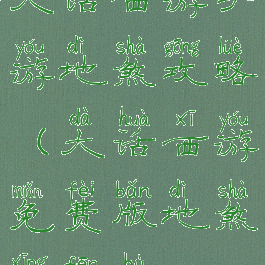 大 话 西 游
yóu dì shà gōng lüè
游 地 煞 攻 略
dà huà xī yóu
( 大 话 西 游
miǎn fèi bǎn dì shà
免 费 版 地 煞